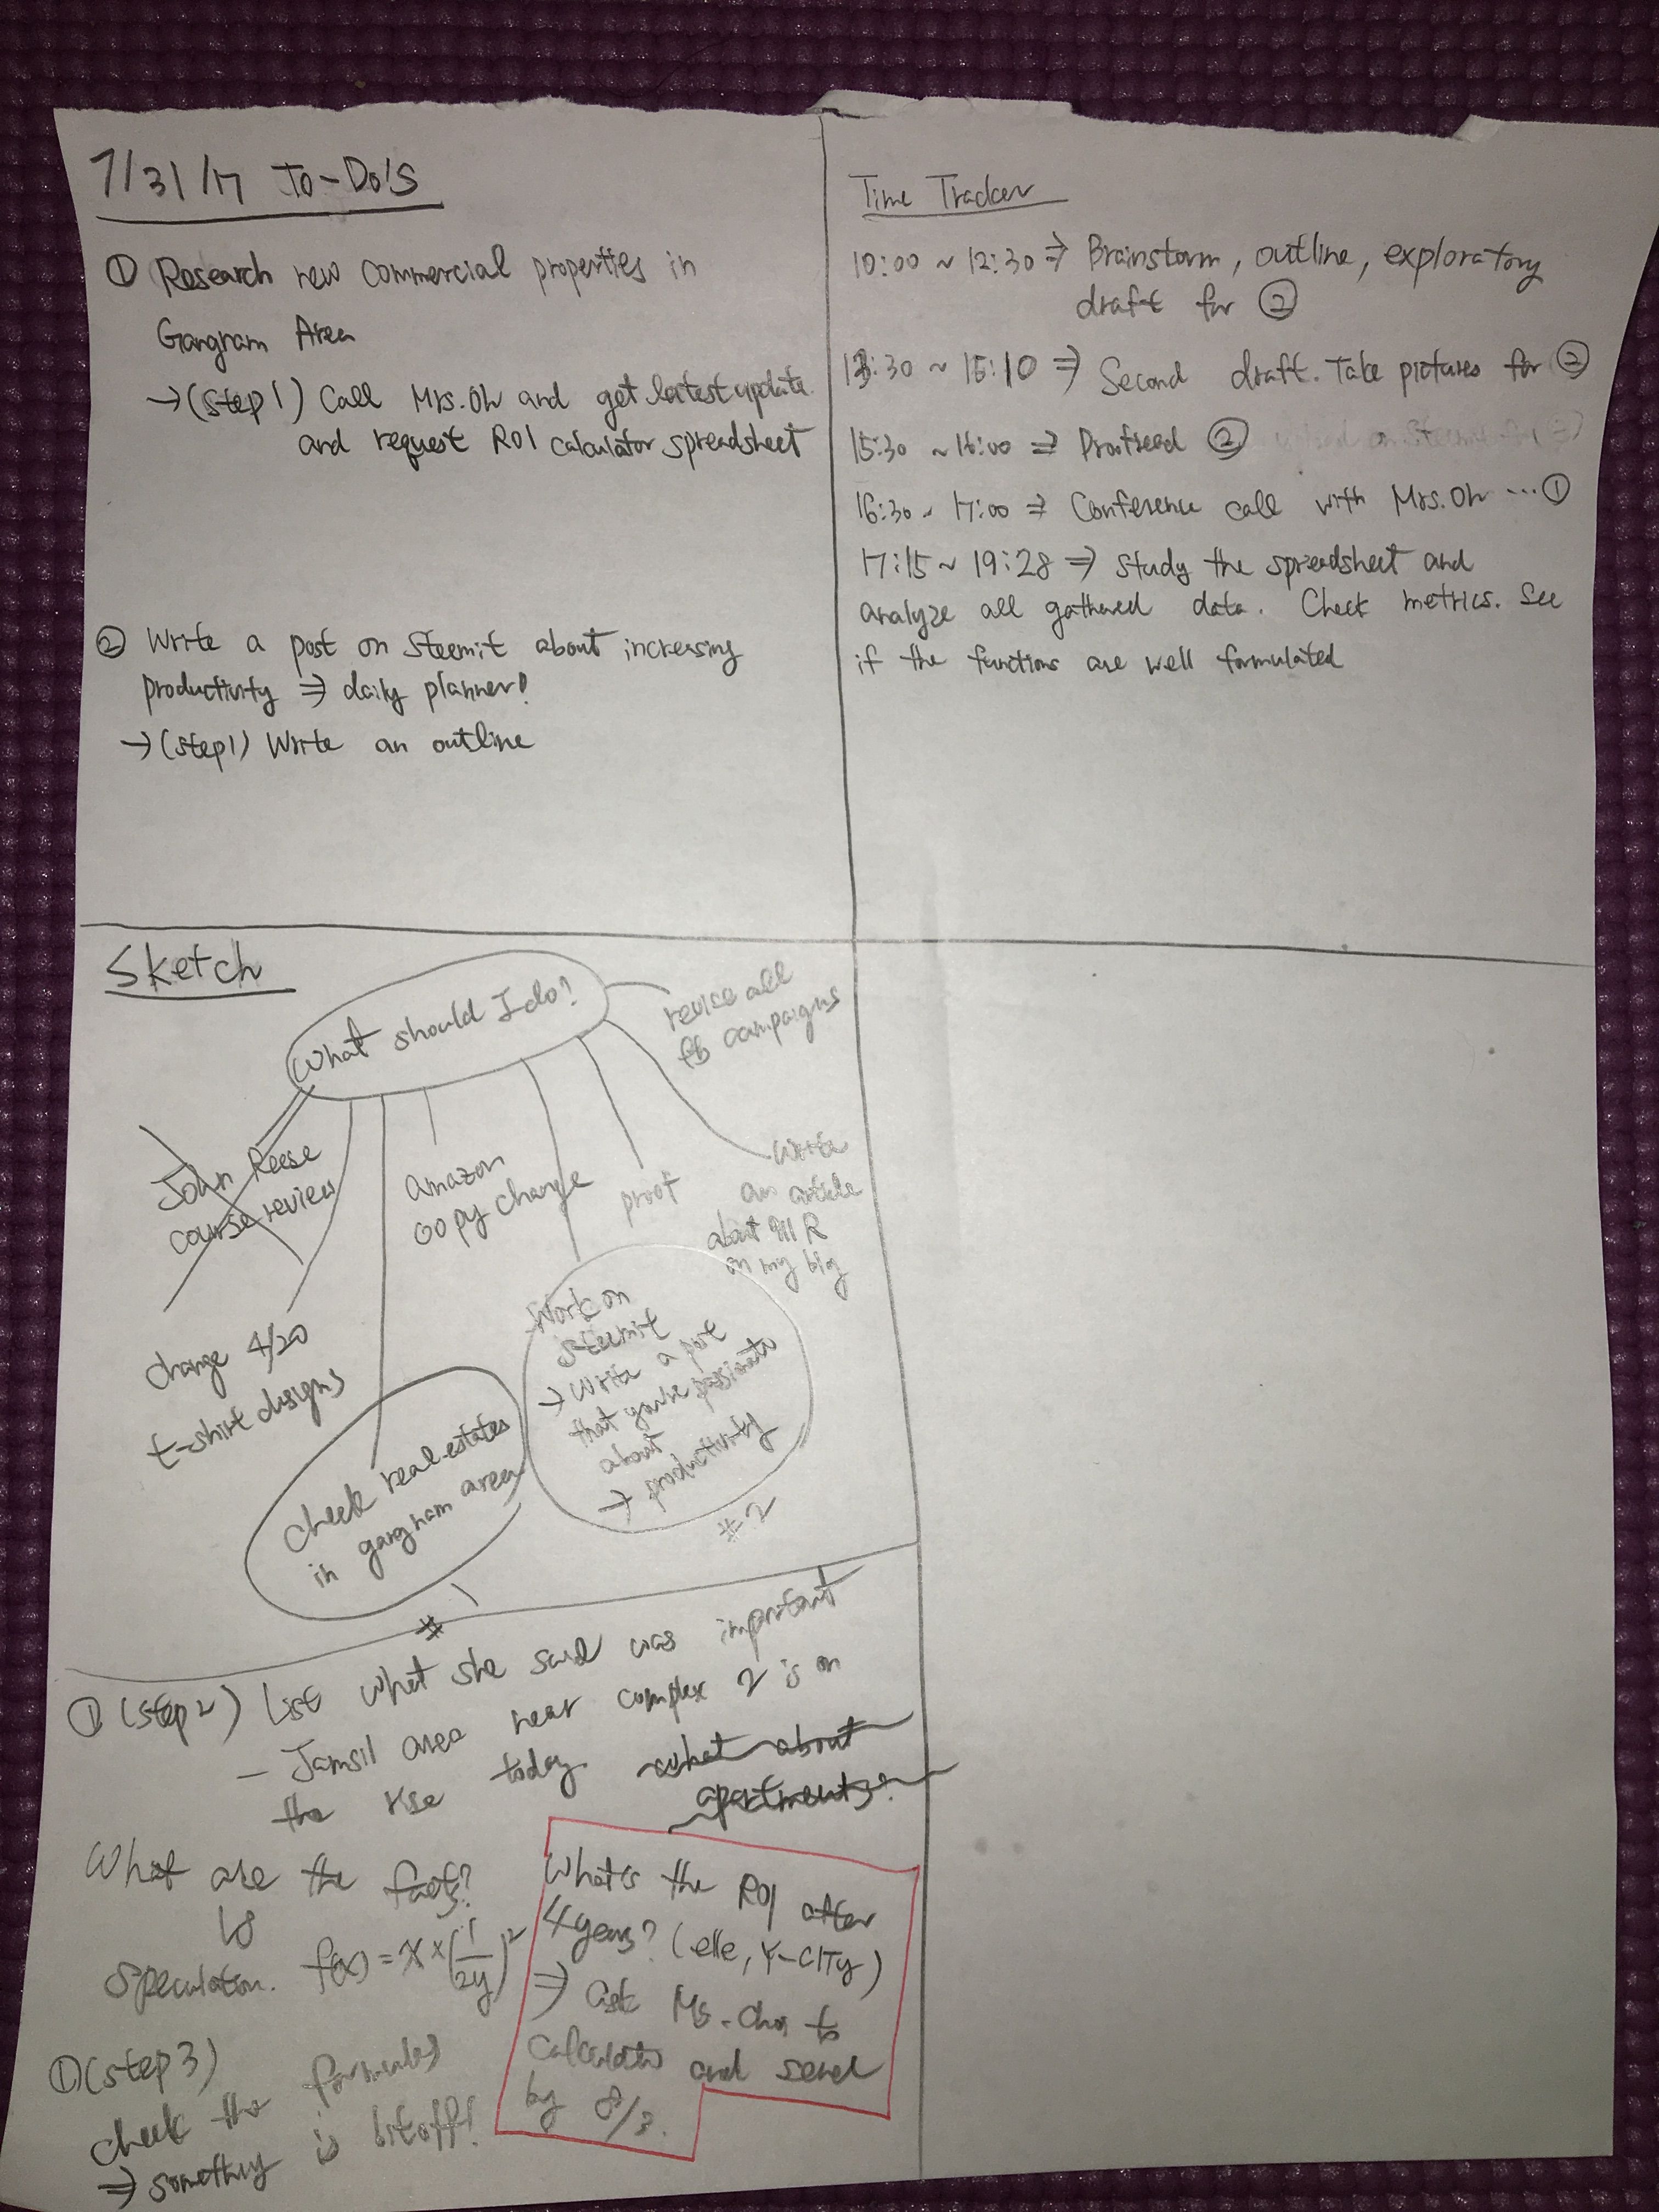 7/31/17 To-Do's
① Research new commercial properties in
Gangnam Area
→(step 1) Call Mrs. Oh and get latest update
and request ROI calculator spreadsheet
② Write a post on Steemit about increasing
productivity ⇒ daily planner!
→(step1) Write an outline
Time Tracker
10:00 ~ 12:30 ⇒ Brainstorm, outline, exploratory
draft for ②
13:30 ~ 15:10 ⇒ Second draft. Take pictures for ②
15:30 ~ 16:00 ⇒ Proofread ②
16:30 ~ 17:00 ⇒ Conference call with Mrs. Oh ... ①
17:15 ~ 19:28 ⇒ Study the spreadsheet and
analyze all gathered data. Check metrics. See
if the functions are well formulated
Sketch
What should I do?
revise all
fb campaigns
John Reese
course review
amazon
copy change
proof
write
an article
about
on my blog
change 4/20
t-shirt designs
check real estates
in gangnam area
#1
Work on
steemit
→ write a post
that you're passionate
about
→ productivity
#2
① (step 2) List what she said was important
- Jamsil area near complex 2 is on
the rise today what about
apartments?
What are the facts?
speculation. f(x) = x × (1/2y)²
What's the ROI after
4 years? (elle, Y-CITY)
⇒ ask Ms. Choi to
calculate and send
by 8/3.
① (step 3)
check the formulas
⇒ something is bit off!